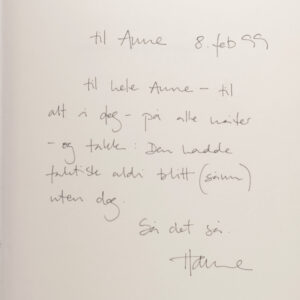 til Anne 8. feb 99
til hele Anne – til
alt i deg – på alle måter
– og takk: Den hadde
faktisk aldri blitt (sånn)
uten deg.
Så det så.
Hanne